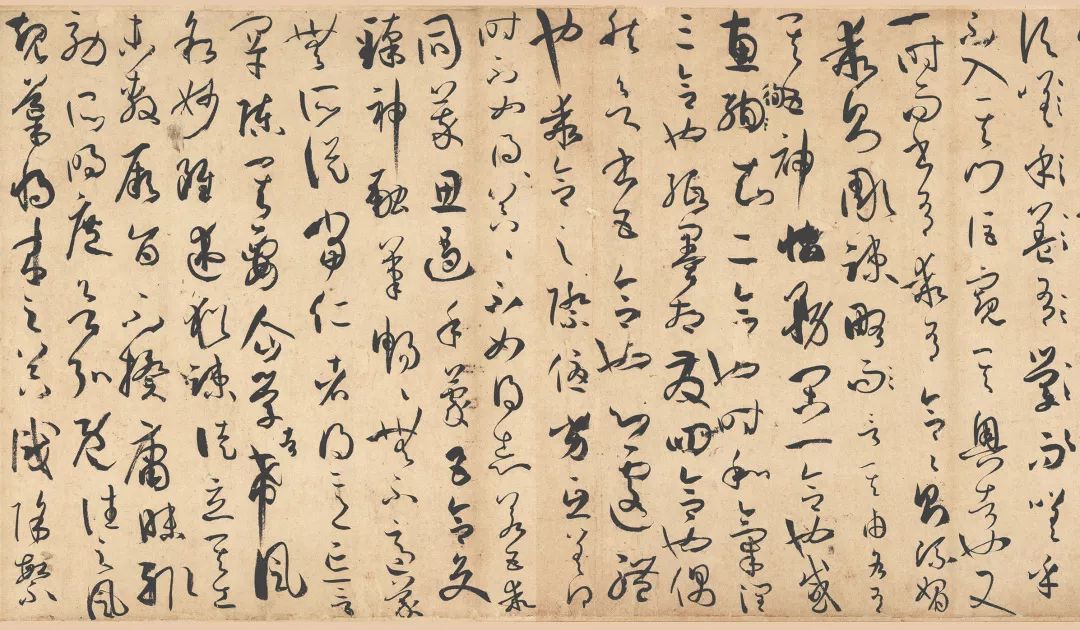 嗟乎
不入其門詎窺其奧者也又
一時而書有乖有合合則流媚
乖則雕疎略而言其由各有
其五神怡務閑一合也感
惠徇知二合也時和氣潤
三合也紙墨相發四合也偶
然欲書五合也心遽體
也乖合之際優劣互差得
時不如得器得器不如得志若五乖
同萃思遏手蒙五合交
臻神融筆暢暢無不適蒙
無所從當仁者得意忘言
罕陳其要企學者希風
敘妙雖述猶疎徒立其工
未敷厥旨不揆庸昧輒
效所明庶欲弘既往之風
規導將來之器識除繁